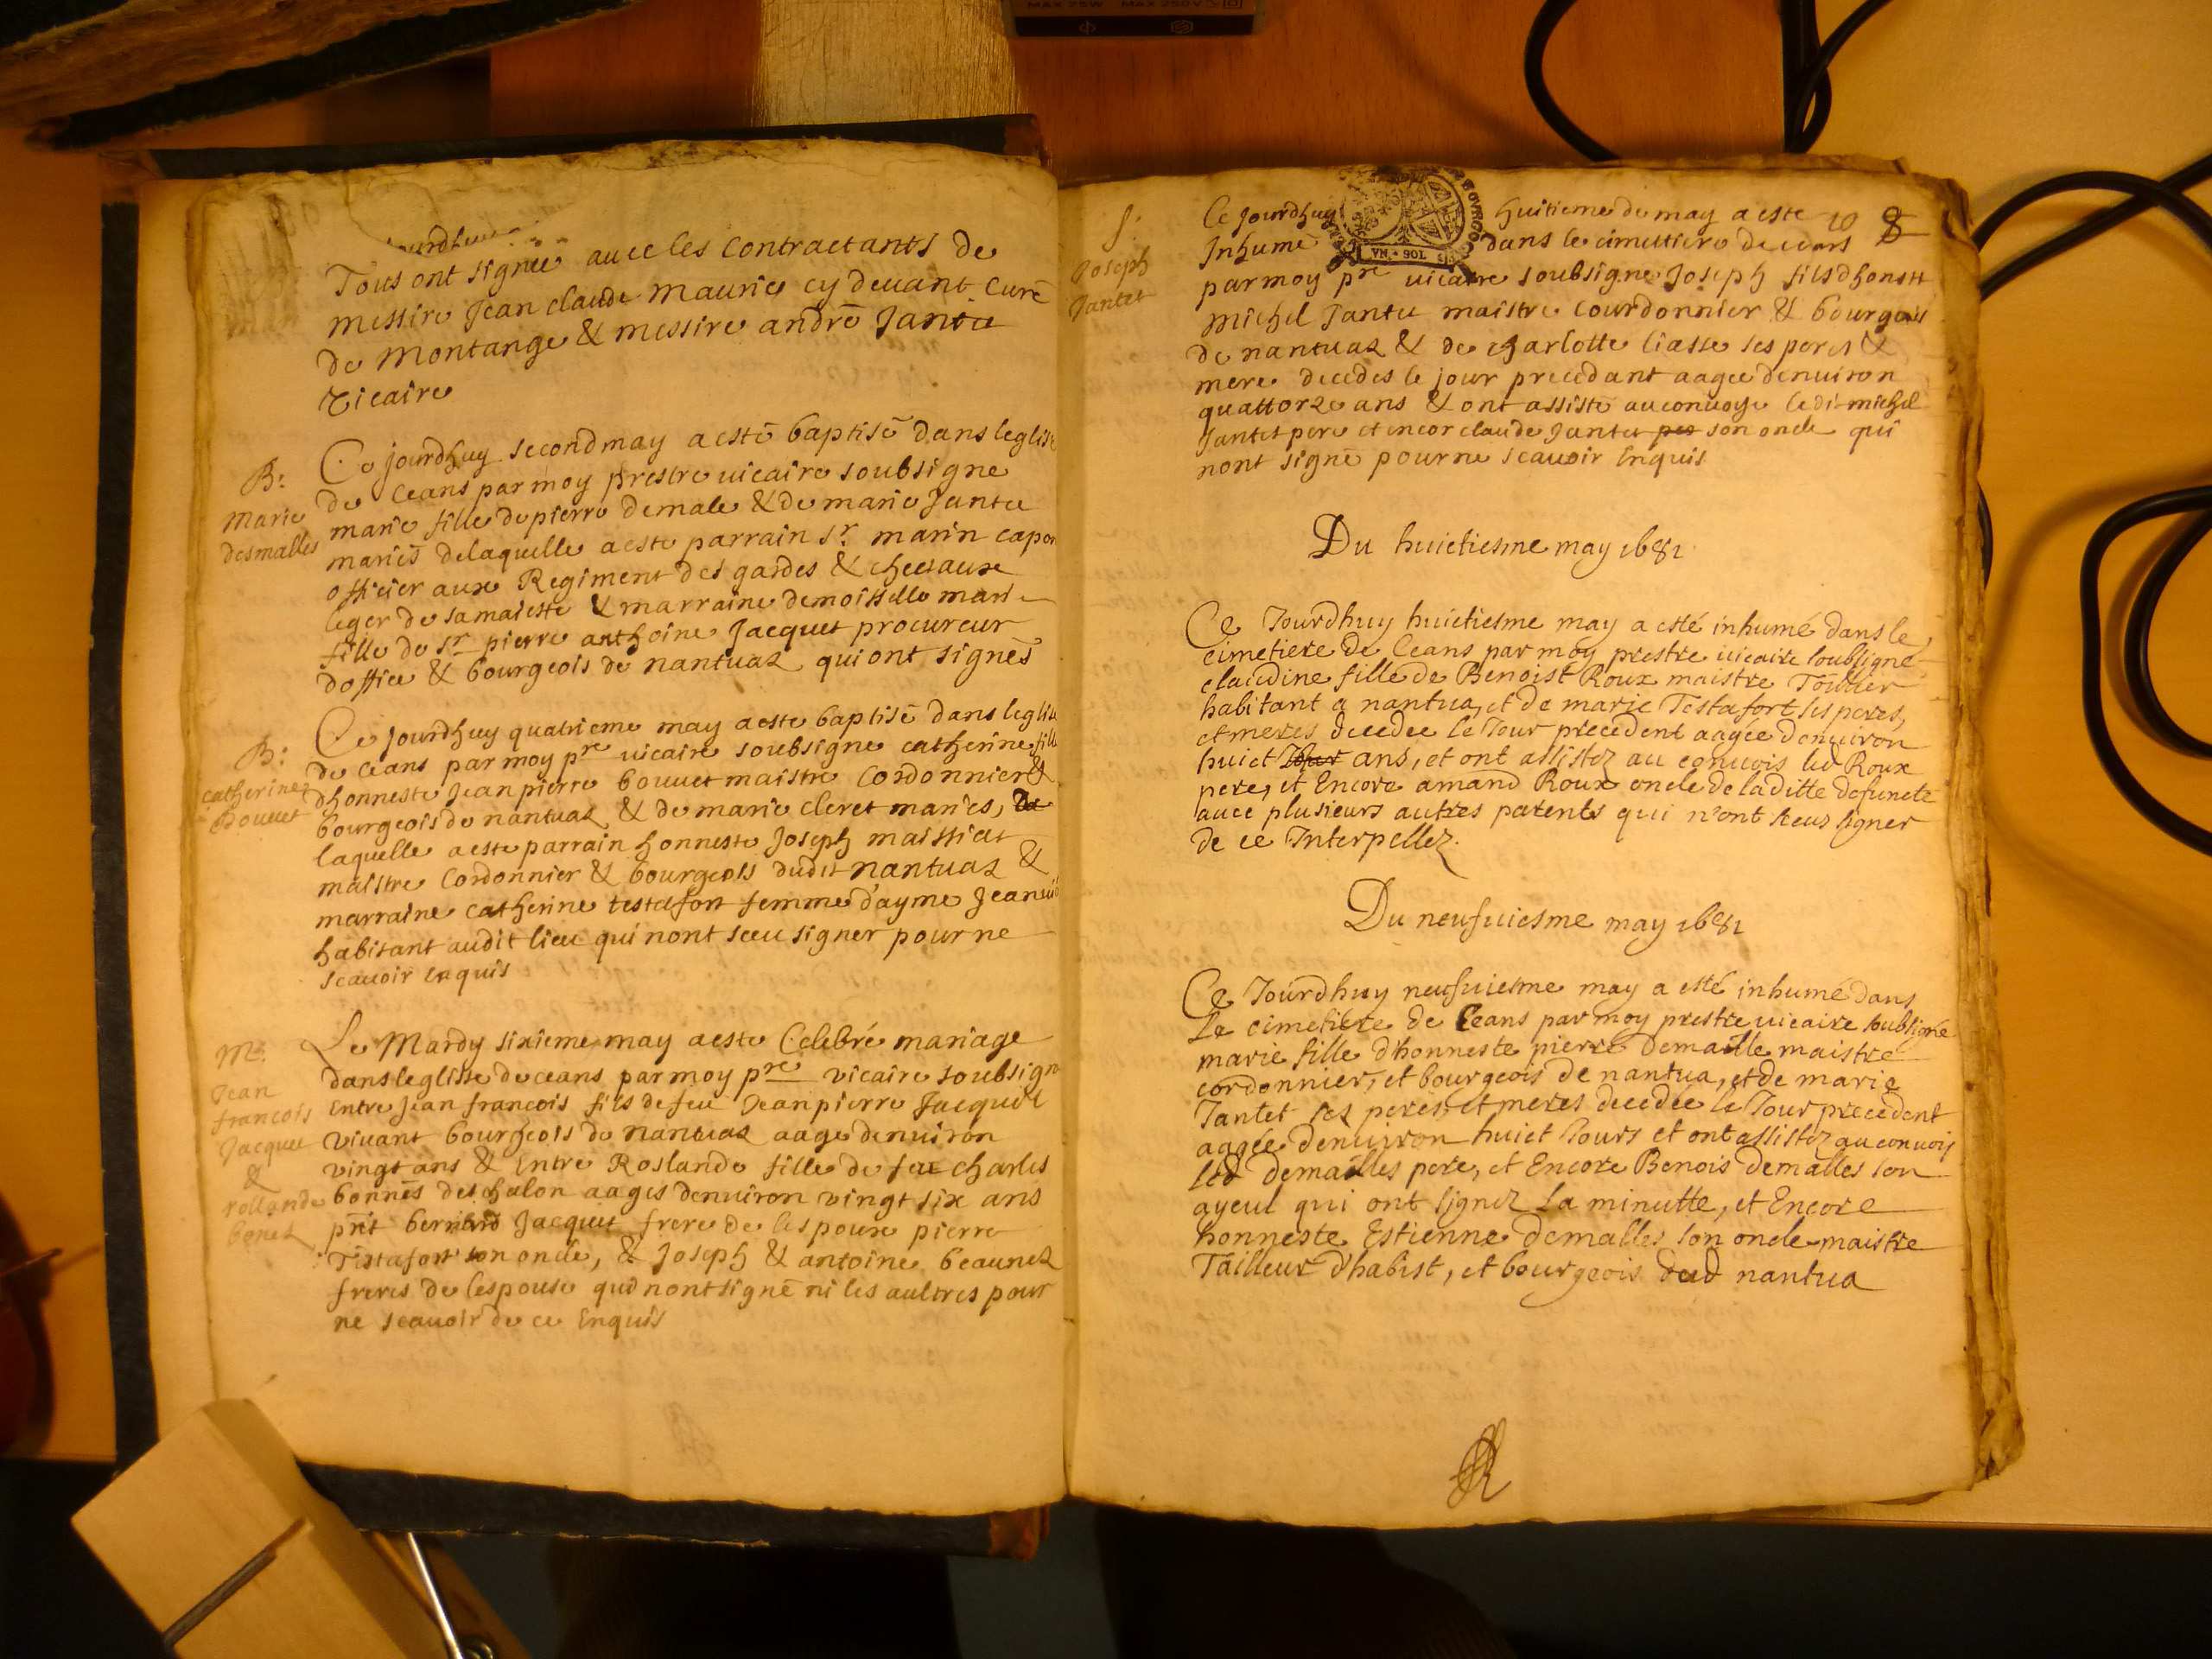 MAX 75W MAX 250V
jourdhuy
Tous ont signée auec les contractants de
messire Jean claude maurice cy deuant curé
de montange & messire andré Jantet
vicaire
B:
marie
desmalles
Ce jourdhuy second may a esté baptisé dans leglise
de ceans par moy prestre uicaire soubsigne
marie fille de pierre demale & de marie Jantet
mariés de laquelle a este parrain sr. marin capon
officier aux Regiment des gardes & cheuaux
leger de sa maieste & marraine demoiselle marie
fille de sr pierre anthoine Jacquet procureur
doffice & bourgeois de nantuas qui ont signés
B:
catherine
Bouuet
Ce jourdhuy quatrieme may a este baptisé dans leglise
de ceans par moy pre uicaire soubsigne catherine fille
dhonneste Jean pierre bouuet maistre cordonnier &
bourgeois de nantuas & de marie cleret mariés, de
laquelle a este parrain honneste Joseph maissiat
maistre cordonnier & bourgeois dudit nantuas &
marraine catherine testafort femme d'ayme
habitant audit lieu qui nont sceu signer pour ne
scauoir enquis
M:
Jean
francois
Jacquet
&
rollande
bonez
Le Mardy sixieme may a este Celebré mariage
dans leglisse de ceans par moy pre vicaire soubsigne
entre Jean francois fils de feu Jean pierre Jacquet
viuant bourgeois de nantuas aage denuiron
vingt ans & entre Roslande fille de feu charles
bonnés deschalon aages denuiron vingt six ans
pnt bernard Jacquet frere de lespoux pierre
Testafort son oncle, & Joseph & antoine beaunez
freres de lespouse qui nont signé ni les aultres pour
ne scauoir de ce enquis
S:
Joseph
Jantet
VN · SOL
10 8
Ce jourdhuy huitieme de may a este
Inhumé dans le cimettiere de ceans
par moy pre uicaire soubsigne Joseph fils dhonste
michel Jantet maistre courdonnier & bourgeois
de nantuas & de charlotte liasse ses peres &
mere decedes le jour precedant aagee denuiron
quattorze ans & ont assiste au conuoye ledi michel
Jantet pere et encor claude Jantet per son oncle qui
nont signé pour ne scauoir enquis
Du huictiesme may 1681
Ce Jourdhuy huictiesme may a esté inhumé dans le
cimetiere de Ceans par moy prestre uicaire soubsigne
claudine fille de Benoist Roux maistre
habitant a nantua, et de marie Testafort ses peres,
et meres decedee le Jour precedent aagée denuiron
huict Jour ans, et ont assistez au conuois led Roux
pere, et Encore amand Roux oncle de laditte defuncte
auec plusieurs autres parents qui n'ont sceus signer
de ce Interpellez.
Du neufuiesme may 1681
Ce Jourdhuy neufuiesme may a esté inhumé dans
Le cimetiere de Ceans par moy prestre uicaire soubsigné
marie fille d'honneste pierre Demaille maistre
cordonnier, et bourgeois de nantua, et de marie
Tantet ses peres, et meres decedée le Jour precedent
aagée denuiron huict Jours et ont assistez au conuois
led demailles pere, et Encore Benois Demalles son
ayeul qui ont signez La minutte, et Encore
honneste Estienne demalles son oncle maistre
Tailleur d'habist, et bourgeois dud nantua